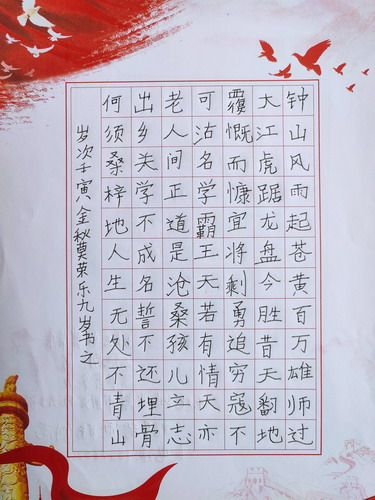 钟山风雨起苍黄百万雄师过
大江虎踞龙盘今胜昔天翻地
覆慨而慷宜将剩勇追穷寇不
可沽名学霸王天若有情天亦
老人间正道是沧桑孩儿立志
出乡关学不成名誓不还埋骨
何须桑梓地人生无处不青山
岁次壬寅金秋莫荣乐九岁书之